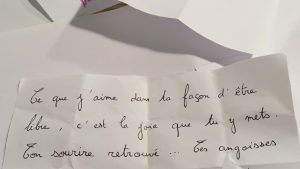 Ce que j'aime dans ta façon d'être
libre, c'est la joie que tu y mets.
Ton sourire retrouvé... Tes angoisses